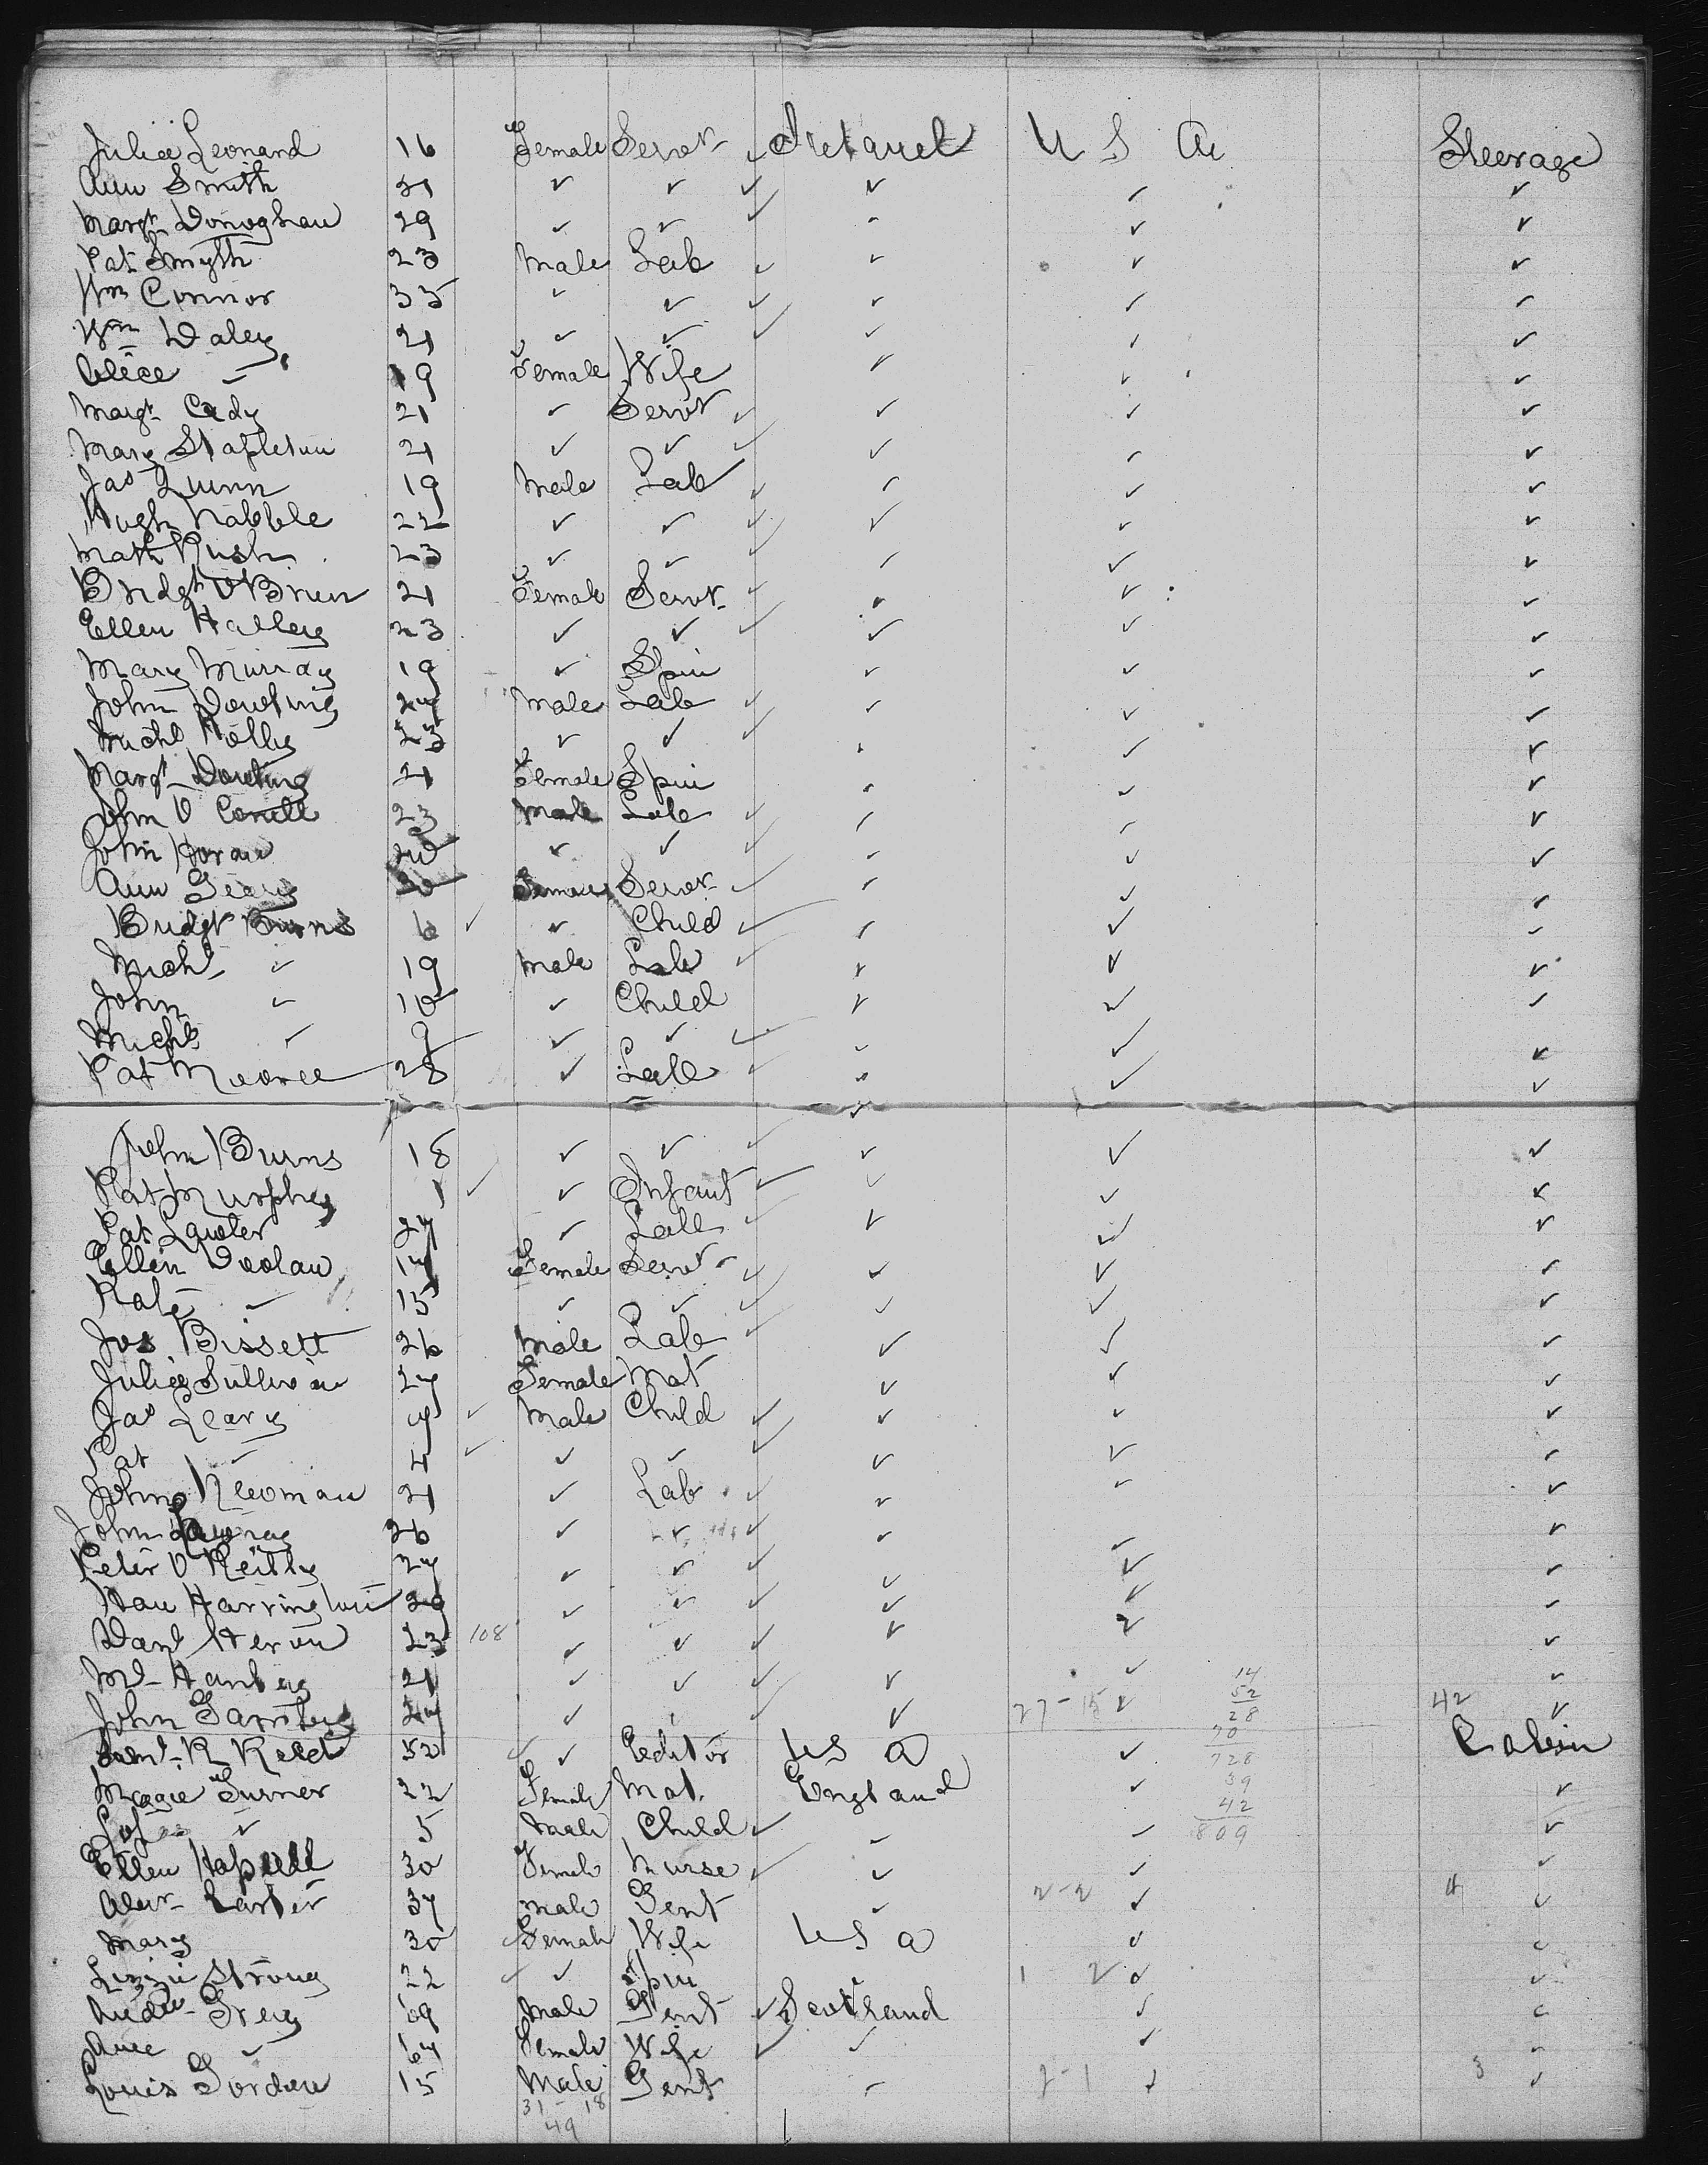 Julia Leonard 16 Female Servt ✓ Ireland U S A Steerage
Ann Smith 21 ✓ ✓ ✓ ✓ ✓ ✓
Margt Donoghau 29 ✓ ✓ ✓ ✓ ✓ ✓
Pat Smyth 23 Male Lab ✓ ✓ ✓ ✓
Wm Connor 35 ✓ ✓ ✓ ✓ ✓ ✓
Wm Daley 21 ✓ ✓ ✓ ✓ ✓ ✓
Alice ✓ 19 Female Wife ✓ ✓ ✓
Margt Cady 21 ✓ Servt ✓ ✓ ✓ ✓
Mary Stapleton 21 ✓ ✓ ✓ ✓ ✓ ✓
Jas Quinn 19 Male Lab ✓ ✓ ✓ ✓
Hugh Nabble 22 ✓ ✓ ✓ ✓ ✓ ✓
Matt Rush 23 ✓ ✓ ✓ ✓ ✓ ✓
Bridgt O Brien 21 Female Servt ✓ ✓ ✓ ✓
Ellen Halley 23 ✓ ✓ ✓ ✓ ✓ ✓
Mary Murray 19 ✓ Spin ✓ ✓ ✓
John Dowling 24 Male Lab ✓ ✓ ✓ ✓
Michl 23 ✓ ✓ ✓ ✓ ✓ ✓
Margt Dowling 21 Female Spin ✓ ✓ ✓
John O 23 Male Lab ✓ ✓ ✓ ✓
John Horan 20 ✓ ✓ ✓ ✓ ✓ ✓
Ann Geary 30 Female Servt ✓ ✓ ✓ ✓
Bridgt Burns 6 ✓ ✓ Child ✓ ✓ ✓ ✓
Michl ✓ 19 Male Lab ✓ ✓ ✓ ✓
John ✓ 10 ✓ Child ✓ ✓ ✓
Michl ✓ 9 ✓ ✓ ✓ ✓ ✓ ✓
Pat 28 ✓ Lab ✓ ✓ ✓ ✓
John Burns 18 ✓ ✓ ✓ ✓ ✓ ✓
Pat Murphy 1 ✓ ✓ Infant ✓ ✓ ✓ ✓
Pat Lawler 24 ✓ Lab ✓ ✓ ✓ ✓
Ellen Doolan 14 Female Servt ✓ ✓ ✓ ✓
Kate ✓ 15 ✓ ✓ ✓ ✓ ✓ ✓
Jos Bissett 26 Male Lab ✓ ✓ ✓ ✓
Julia Sullivan 24 Female Mat ✓ ✓ ✓
Jas Leary 4 ✓ Male Child ✓ ✓ ✓ ✓
Pat ✓ 4 ✓ ✓ ✓ ✓ ✓ ✓ ✓
John 21 ✓ Lab ✓ ✓ ✓ ✓
John 26 ✓ ✓ ✓ ✓ ✓ ✓
Peter O Reilly 24 ✓ ✓ ✓ ✓ ✓ ✓
Harrington 20 ✓ ✓ ✓ ✓ ✓ ✓
Danl Heron 23 108 ✓ ✓ ✓ ✓ ✓ ✓
Ml Hanley 21 ✓ ✓ ✓ ✓ ✓ 14 ✓
John 24 ✓ ✓ ✓ 27-15 ✓ 52 28 42 ✓
Saml R Reed 52 ✓ ✓ Editor U S A ✓ 70 728 Cabin
Maggie Turner 22 Female Mat. England ✓ 39 ✓
✓ 5 Male Child ✓ ✓ ✓ 42 809 ✓
Ellen 30 Female Nurse ✓ ✓ ✓ ✓
Alexr Carter 34 Male Gent ✓ 2-2 ✓ 4 ✓
Mary 30 ✓ Female Wife U S A ✓ ✓
Lizzie Strong 22 ✓ ✓ Spin 1 2 ✓ ✓
Andw Greig 69 Male Gent ✓ Scotland ✓ ✓
✓ 64 Female Wife ✓ ✓ ✓ ✓
Louis Gordon 15 Male Gent ✓ 2-1 ✓ 3 ✓
31-18
49